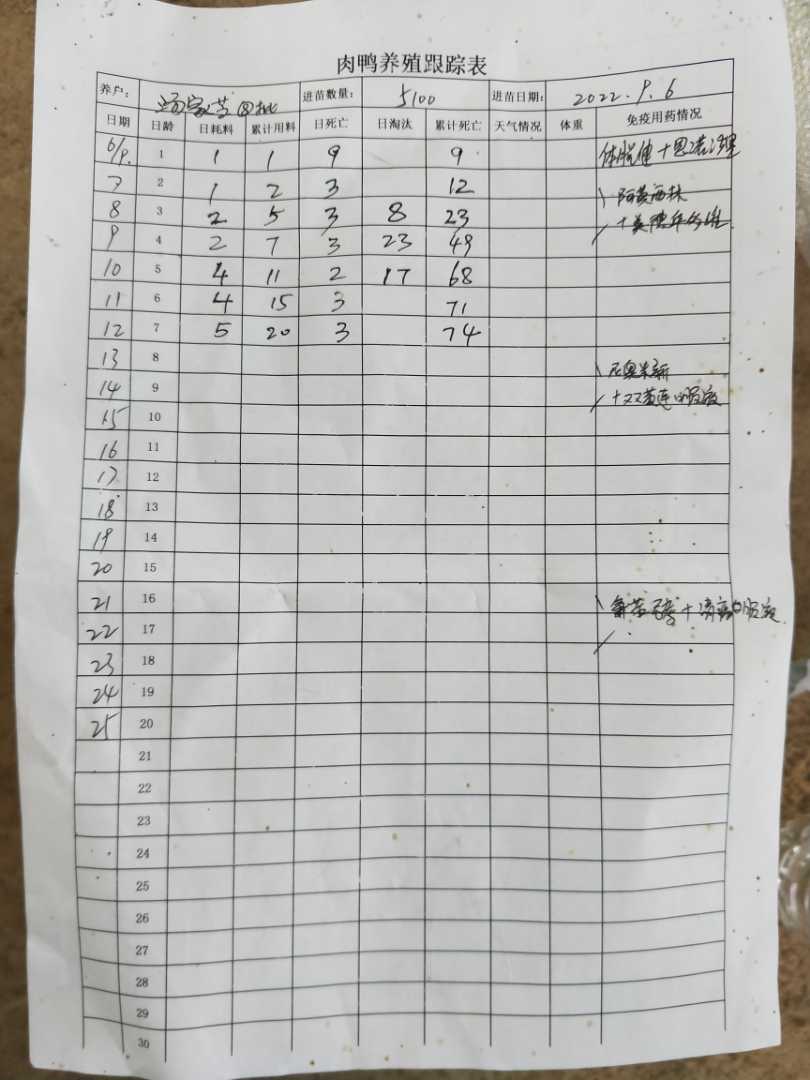 肉鸭养殖跟踪表
养户: 汤家芳 四批 进苗数量: 5100 进苗日期: 2022.9.6
日期 日龄 日耗料 累计用料 日死亡 日淘汰 累计死亡 天气情况 体重 免疫用药情况
6/9. 1 1 1 9 9
7 2 1 2 3 12 阿莫西林
8 3 2 5 3 8 23
9 4 2 7 3 23 49
10 5 4 11 2 17 68
11 6 4 15 3 71
12 7 5 20 3 74
13 8
14 9 +双黄连口服液
15 10
16 11
17 12
18 13
19 14
20 15
21 16
22 17
23 18
24 19
25 20
21
22
23
24
25
26
27
28
29
30